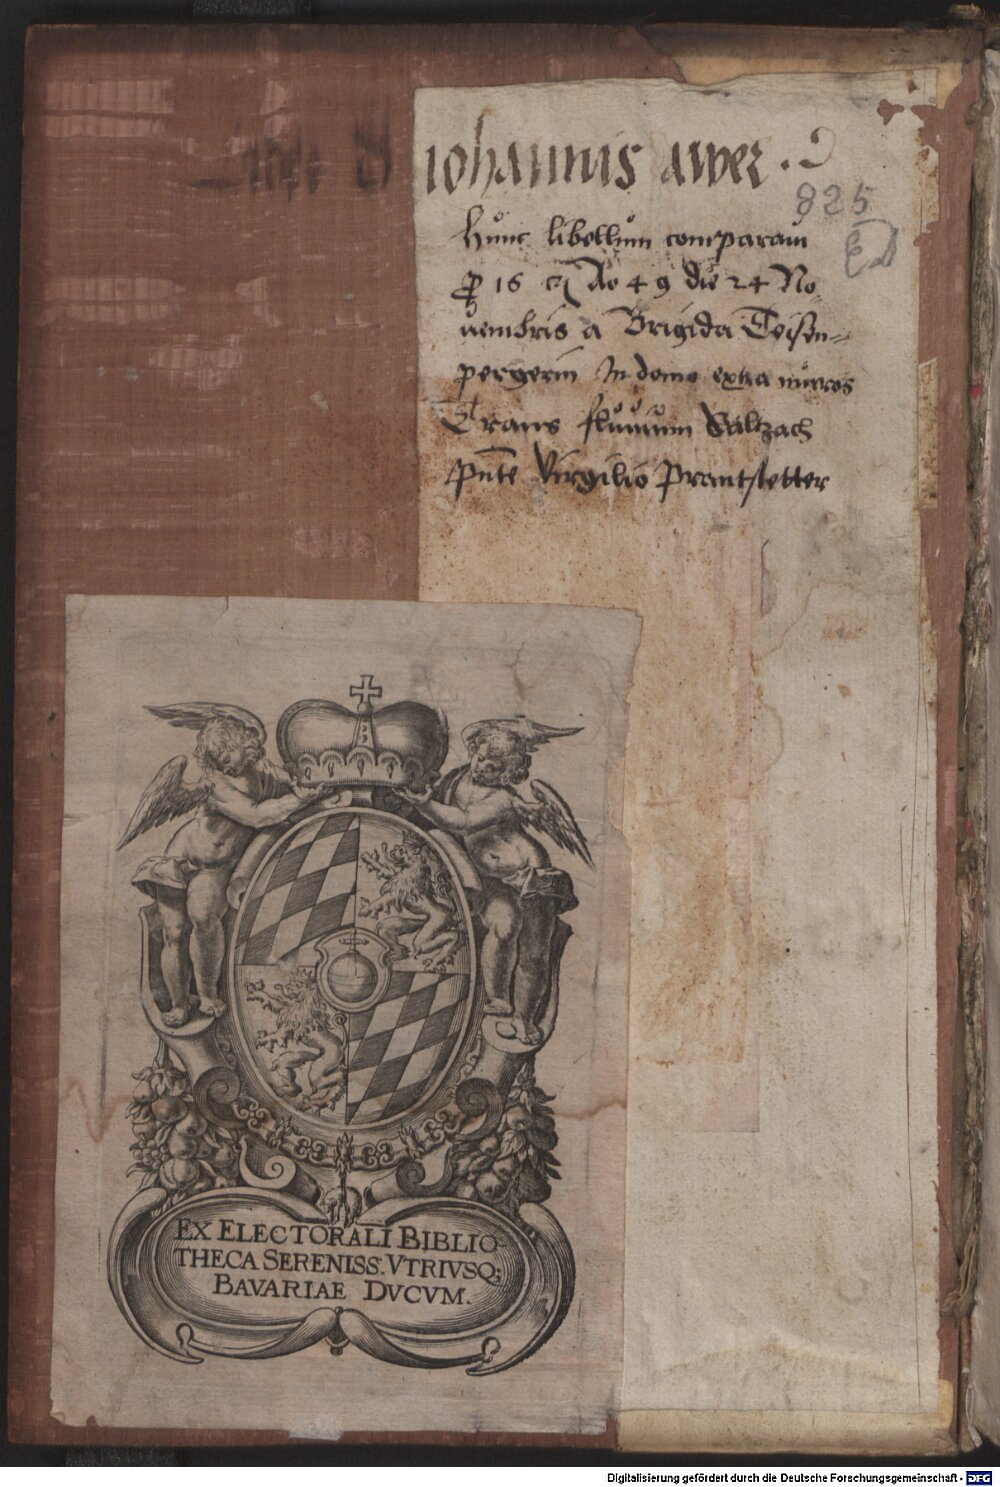 iohannis awer
825
Hunc libellum comparaui
16 Ao 49 die 24 No
uembris a Brigida Teisen=
pergerin In domo extra muros
Trans fluuium Saltzach
pnte Virgilio Prantstetter
EX ELECTORALI BIBLIO-
THECA SERENISS. VTRIVSQ;
BAVARIAE DVCVM.
Digitalisierung gefördert durch die Deutsche Forschungsgemeinschaft - DFG